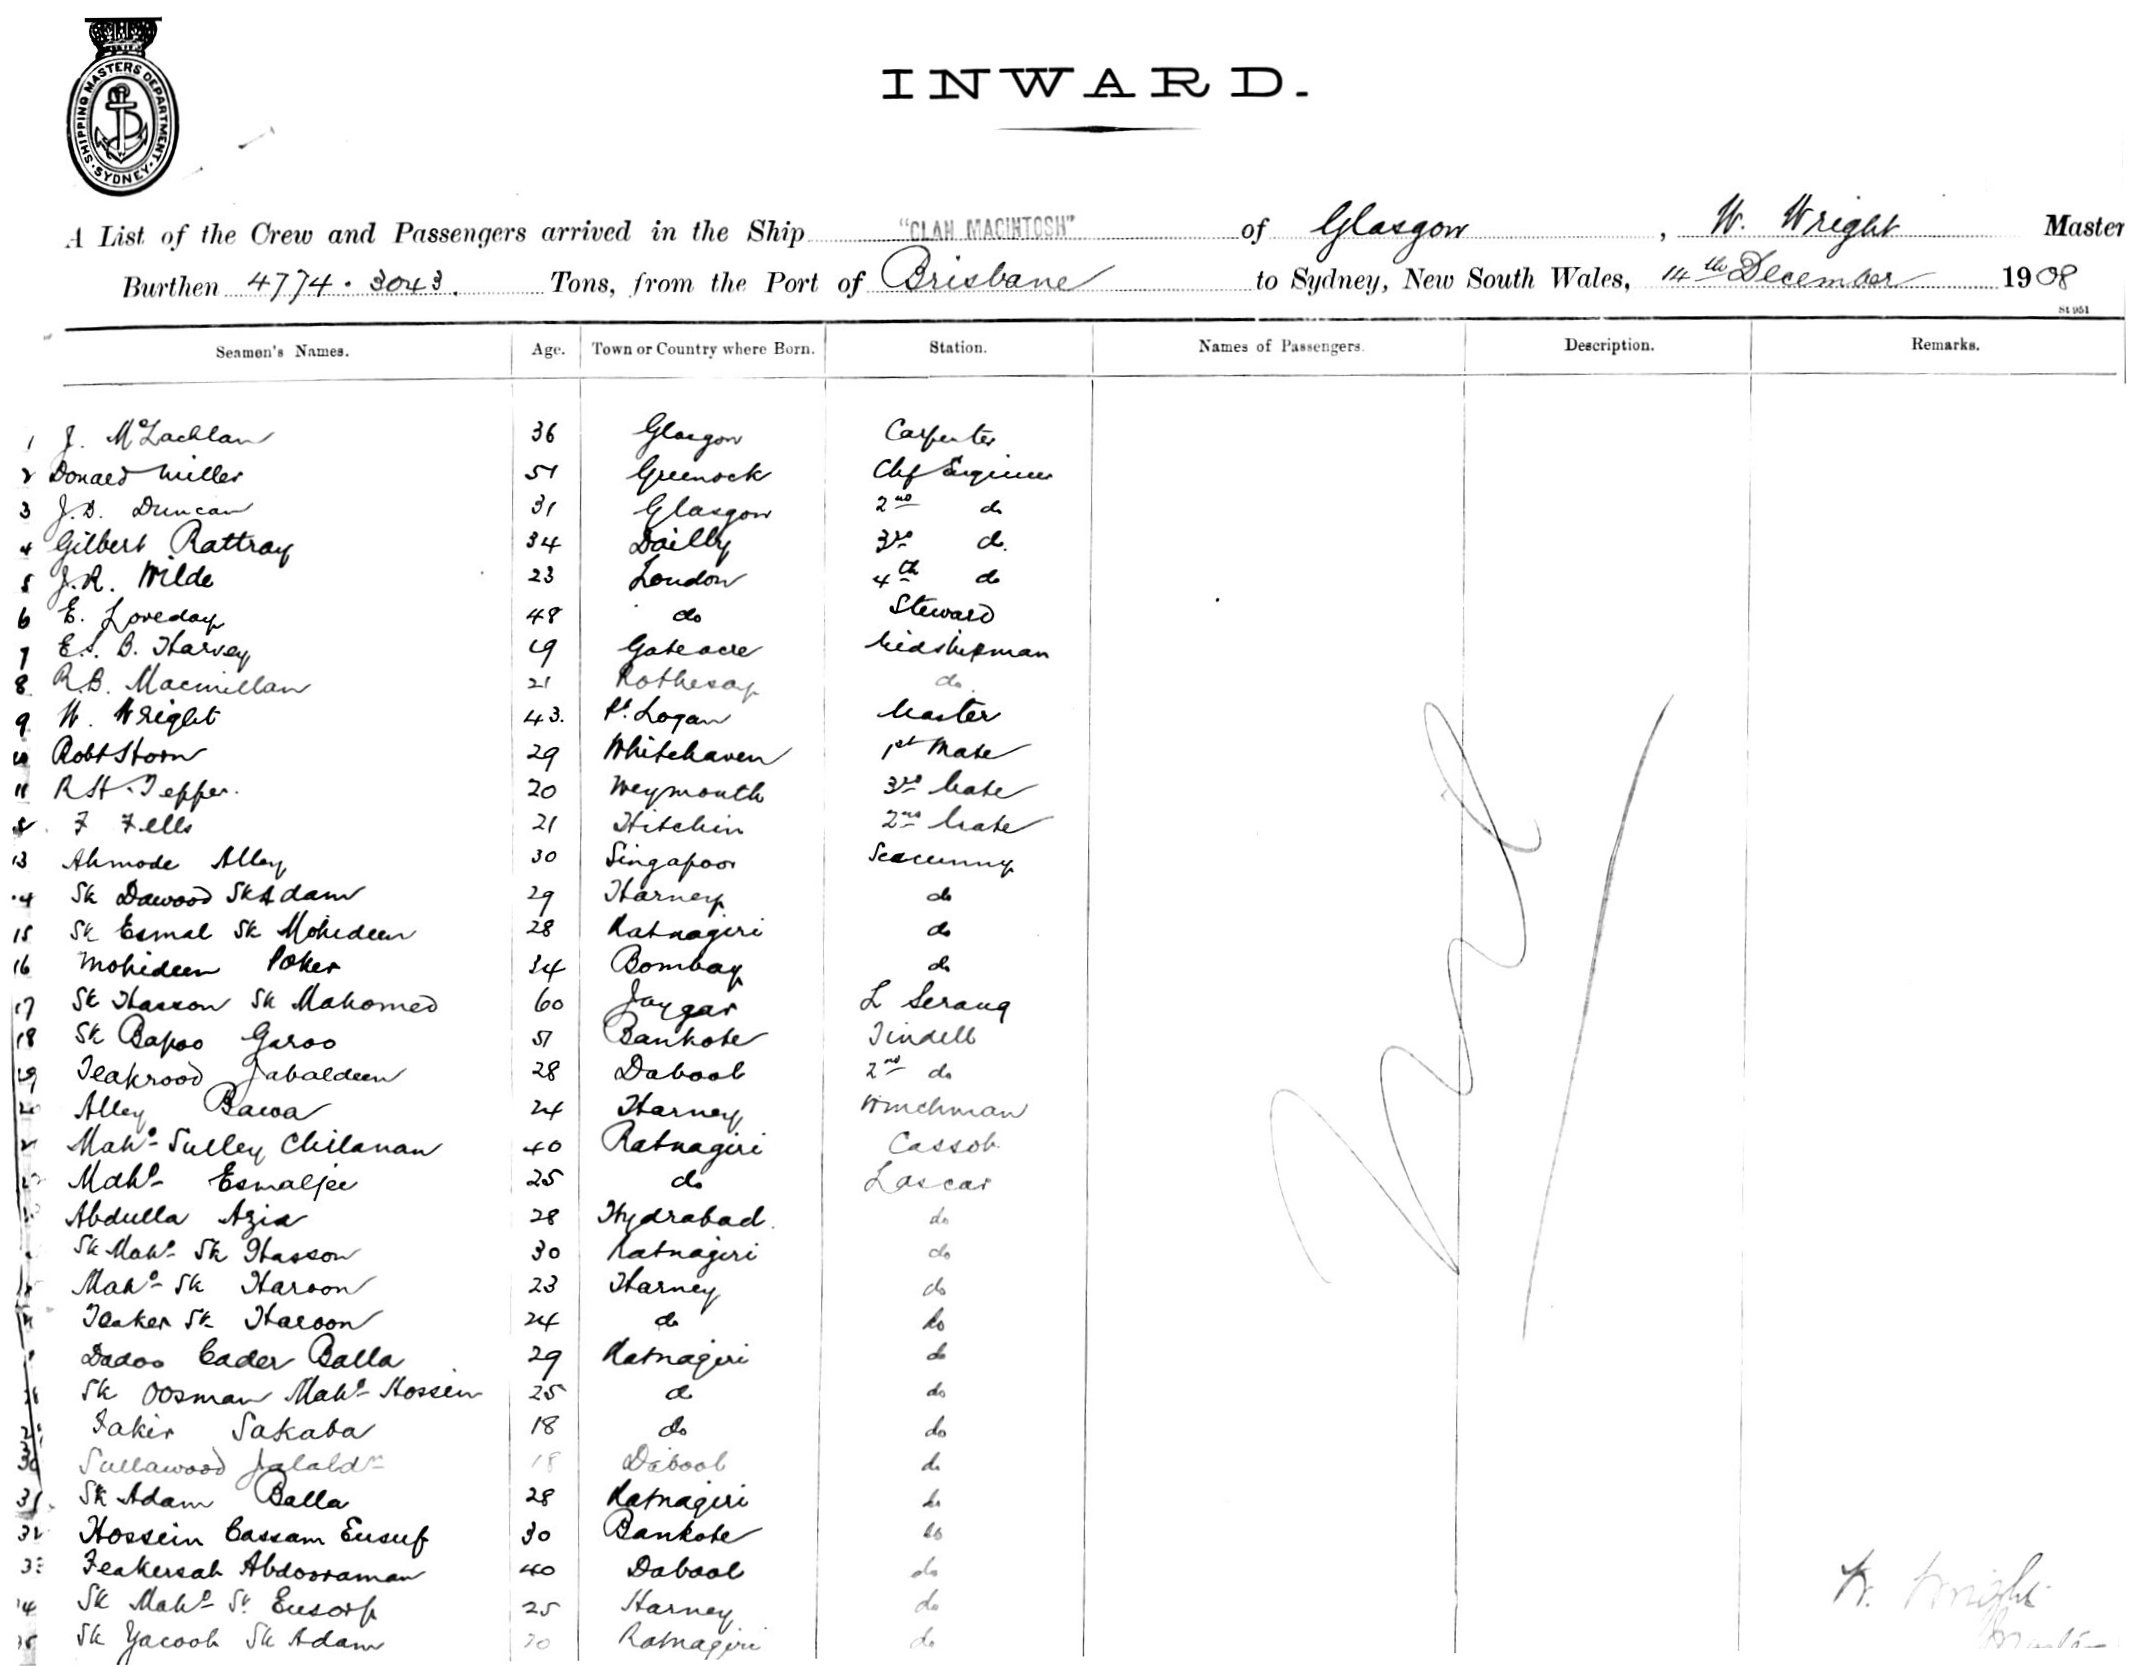 SHIPPING MASTERS DEPARTMENT. SYDNEY
INWARD.
A List of the Crew and Passengers arrived in the Ship "CLAN MACINTOSH" of Glasgow, W. Wright Master
Burthen 4774 . 3043. Tons, from the Port of Brisbane to Sydney, New South Wales, 14th December 1908
St 951
Seamen's Names. Age. Town or Country where Born. Station. Names of Passengers. Description. Remarks.
1 J. McLachlan 36 Glasgow Carpenter
2 Donald Miller 51 Greenock Chf Engineer
3 J.B. Duncan 31 Glasgow 2nd do
4 Gilbert Rattray 34 Dailly 3rd do.
5 J.R. Wilde 23 London 4th do
6 E. Loveday 48 do Steward
7 E.S. B. Harvey 19 Gateacre Midshipman
8 R.B. Macmillan 21 Rothesay do.
9 W. Wright 43. Pt. Logan Master
10 Robt Storm 29 Whitehaven 1st Mate
11 R H. Tepper. 20 Weymouth 3rd Mate
F Fells 21 Hitchin 2nd Mate
13 Ahmode Alley 30 Singapoor Seacunny
14 Sk Dawood Sk Adam 29 Harney do
15 Sk Esmal Sk Mohideen 28 Ratnagiri do
16 Mohideen Poker 34 Bombay do
17 Sk Hasson Sk Mahomed 60 Jaygar L Serang
18 Sk Bapoo Garoo 51 Bankote Tindell
19 Teakrood Jabaldeen 28 Dabool 2nd do
Alley Bawa 24 Harney Winchman
Mahd Sulley Chilanan 40 Ratnagiri Cassob.
Mahd Esmaljee 25 do Lascar
Abdulla Azia 28 Hydrabad. do
Sk Mahd Sk Hasson 30 Ratnagiri do
Mahd Sk Haroon 23 Harney do
Teaker Sk Haroon 24 do do
Dadoo Cader Balla 29 Ratnagiri do
Sk Oosman Mahd Hossein 25 do do
Fakir Sakaba 18 do do
30 Sullawood Jalaldn 18 Dabool do
31. Sk Adam Balla 28 Ratnagiri do
32 Hossein Cassam Eusuf 30 Bankote do
33 Feakersah Abdooraman 40 Dabool do
34 Sk Mahd Sk Eusoof 25 Harney do
35 Sk Yacoob Sk Adam 30 Ratnagiri do
Nil
W. Wright
Master